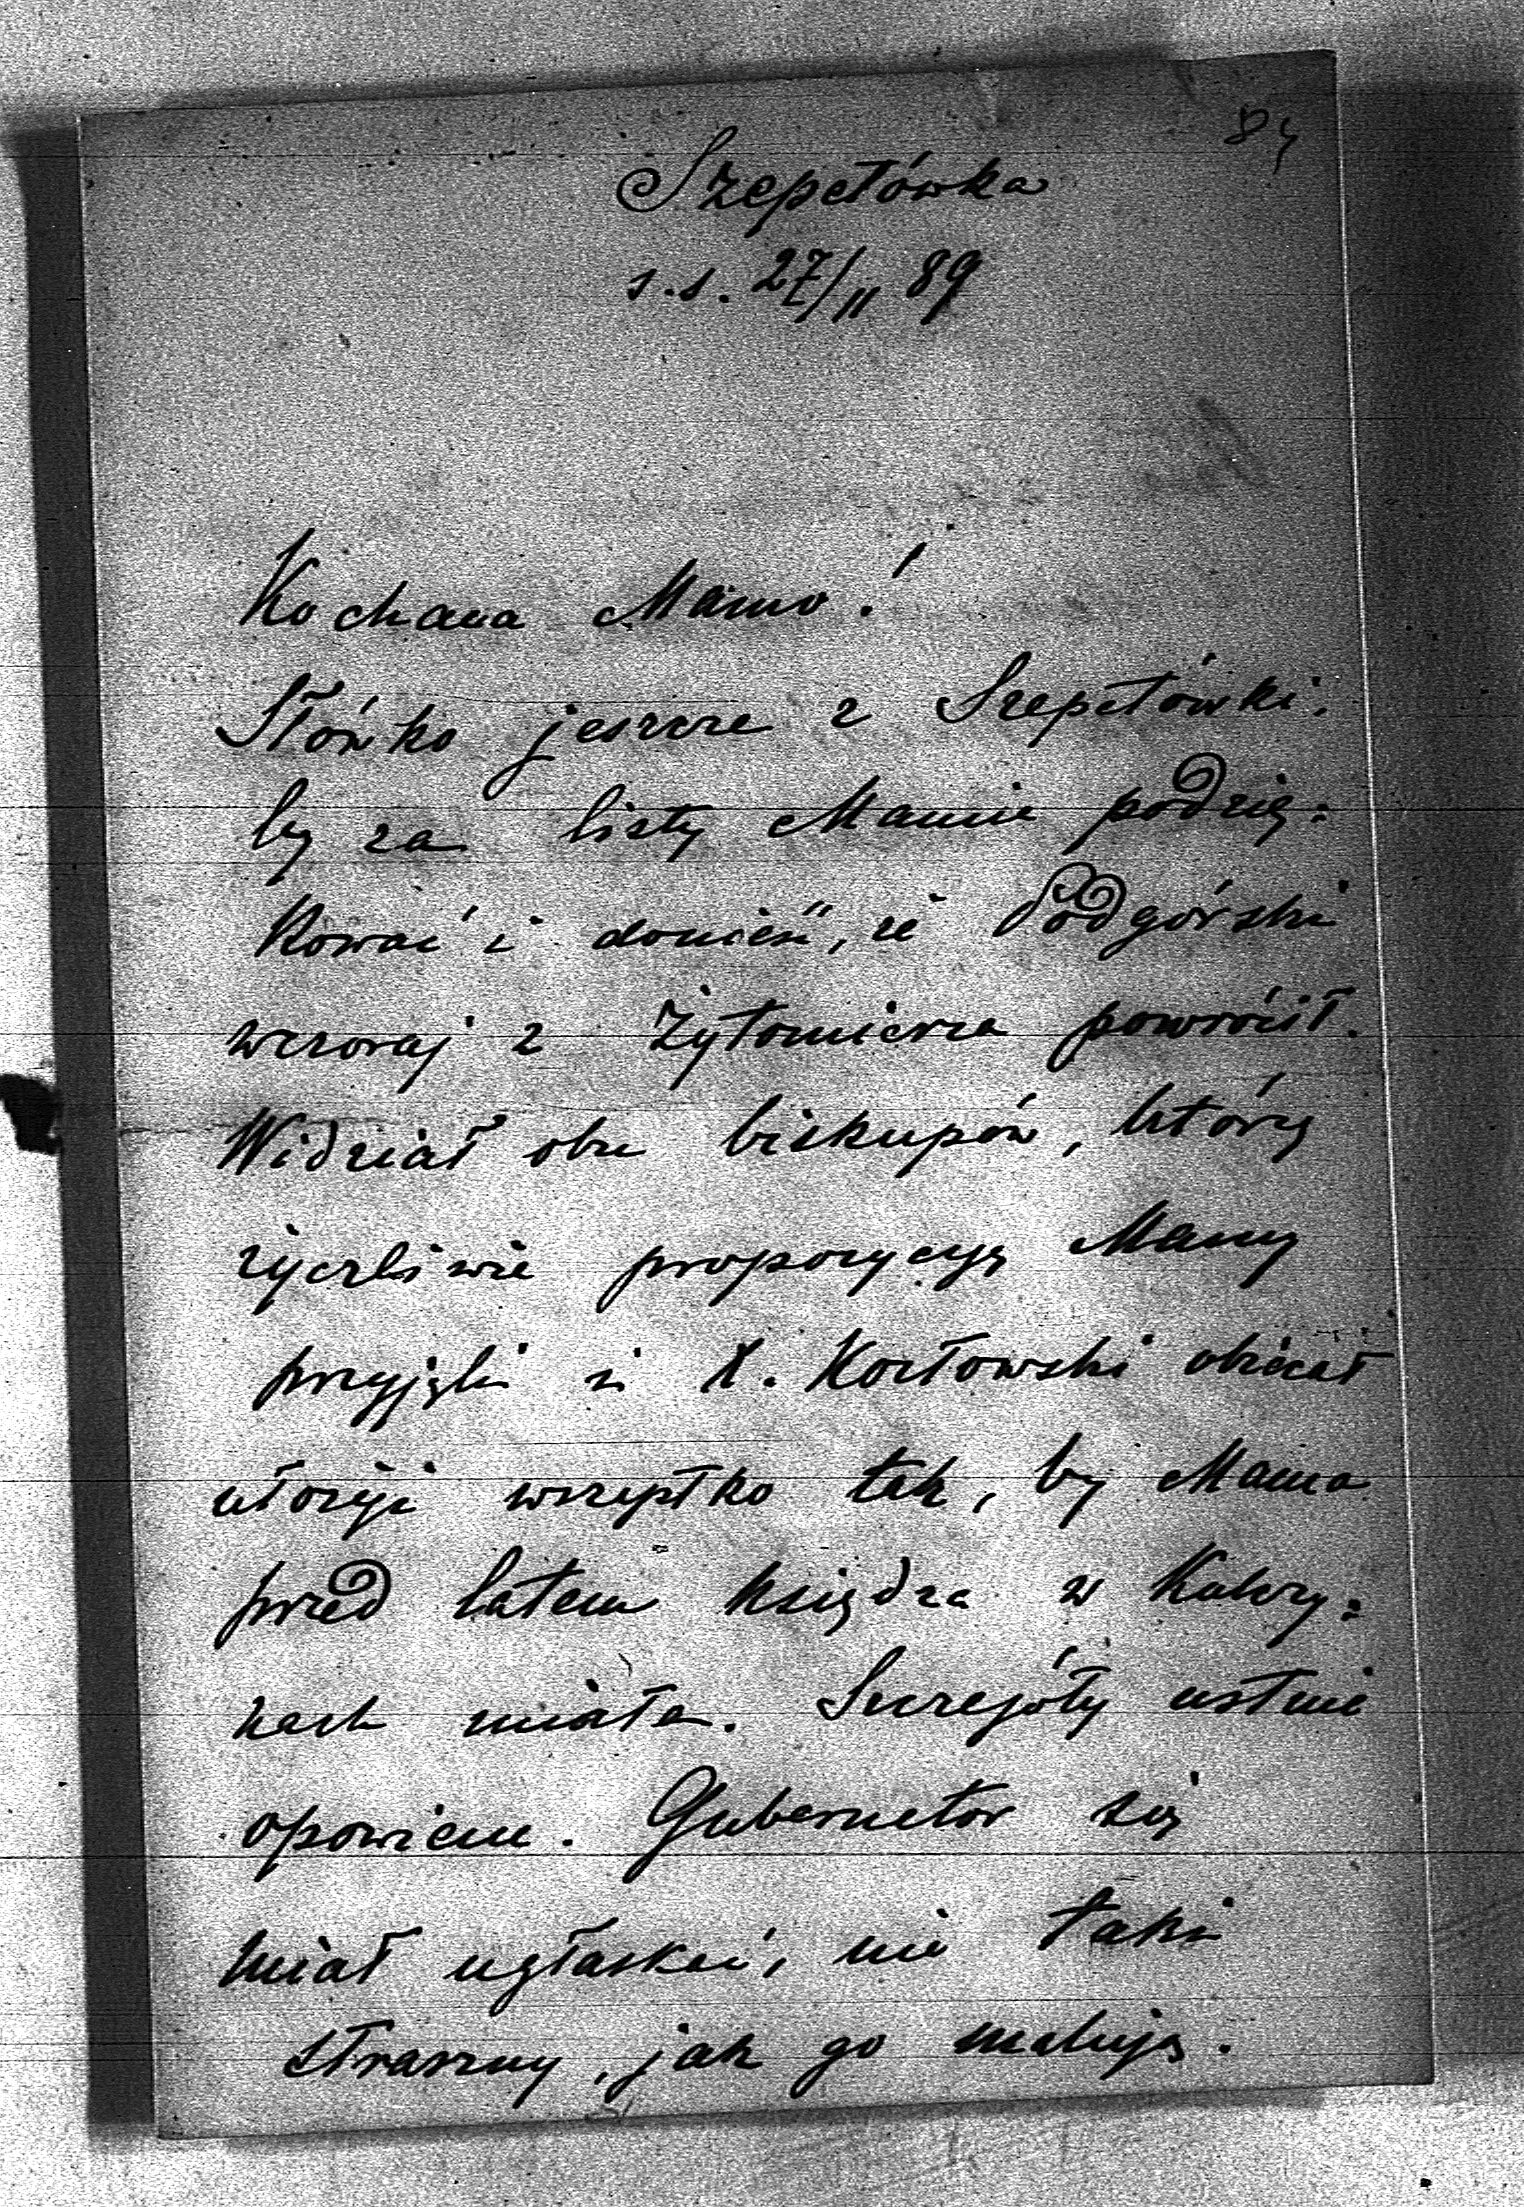 84
Szepetówka
s.s. 27/II 89
Kochana Mamo!
Słówko jeszcze z Szepetówki,
by za listy Mamie podzię:
kować i donieść, że Podgórski
wczoraj z Żytomierza powrócił.
Widział obu biskupów, którzy
życzliwie propozycyę Mamy
przyjęli i X. Kozłowski obiecał
ułożyć wszystko tak, by Mama
przed latem księdza w
nach miała. Szczegóły ustnie
opowiem. Gubernator się
miał ugłaskać, nie taki
straszny, jak go malują.